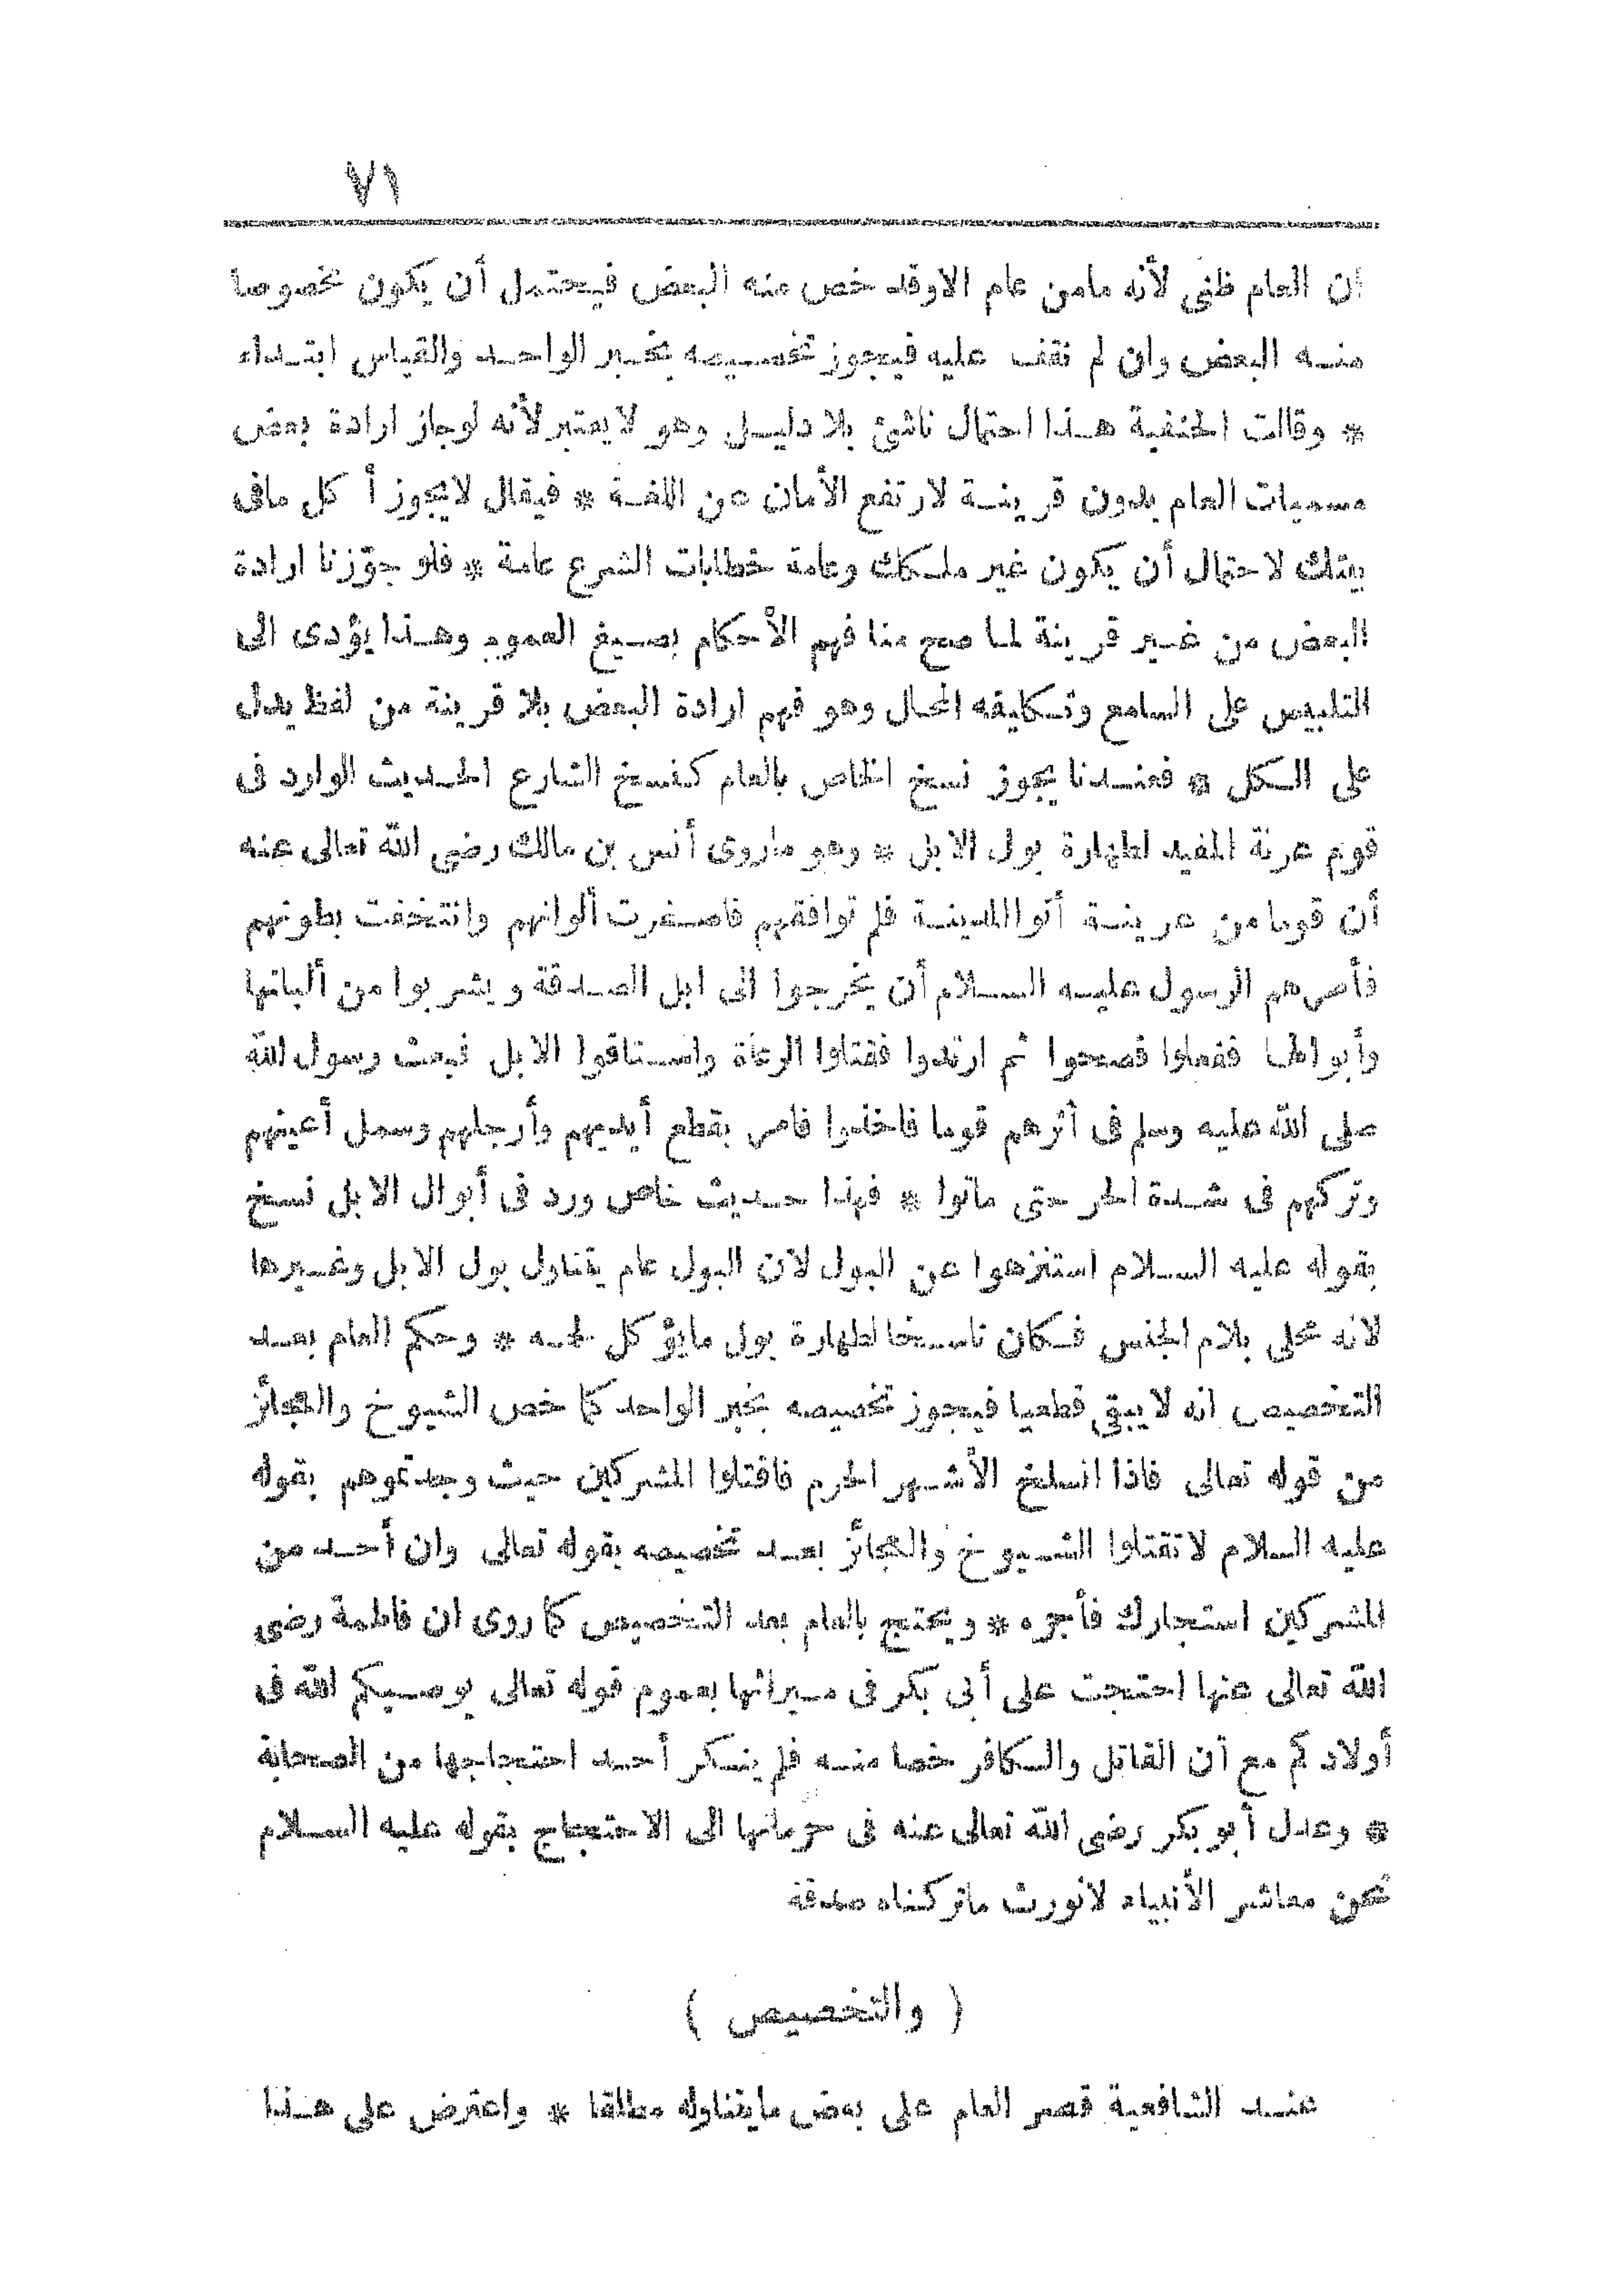 ٧١
ان العام ظنى لأنه مامن عام الاوقد خص منه البعض فيحتمل أن يكون مخصوصا
منه البعض وان لم نقف عليه فيجوز تخصيصه بخبر الواحد والقياس ابتداء
* وقالت الحنفية هذا احتمال ناشئ بلا دليل وهو لا يعتبر لأنه لوجاز ارادة بعض
مسميات العام بدون قرينة لارتفع الأمان عن اللغة * فيقال لايجوز أكل مافى
بيتك لاحتمال أن يكون غير ملكك وعامة خطابات الشرع عامة * فلو جوّزنا ارادة
البعض من غير قرينة لما صح منا فهم الأحكام بصيغ العموم وهذا يؤدى الى
التلبيس على السامع وتكليفه المحال وهو فهم ارادة البعض بلا قرينة من لفظ يدل
على الكل * فعندنا يجوز نسخ الخاص بالعام كنسخ الشارع الحديث الوارد فى
قوم عرنة المفيد لطهارة بول الابل * وهو ماروى أنس بن مالك رضى الله تعالى عنه
أن قوما من عرينة أتوا المدينة فلم توافقهم فاصفرت ألوانهم وانتفخت بطونهم
فأمرهم الرسول عليه السلام أن يخرجوا الى ابل الصدقة ويشربوا من ألبانها
وأبوالها ففعلوا فصحوا ثم ارتدوا فقتلوا الرعاة واستاقوا الابل فبعث رسول الله
صلى الله عليه وسلم فى أثرهم قوما فاخذوا فامر بقطع أيديهم وأرجلهم وسمل أعينهم
وتركهم فى شدة الحر حتى ماتوا * فهذا حديث خاص ورد فى أبوال الابل نسخ
بقوله عليه السلام استنزهوا عن البول لان البول عام يتناول بول الابل وغيرها
لانه محلى بلام الجنس فكان ناسخا لطهارة بول مايؤكل لحمه * وحكم العام بعد
التخصيص انه لا يبقى قطعيا فيجوز تخصيصه بخبر الواحد كما خص الشيوخ والعجائز
من قوله تعالى فاذا انسلخ الأشهر الحرم فاقتلوا المشركين حيث وجدتموهم بقوله
عليه السلام لا تقتلوا الشيوخ والعجائز بعد تخصيصه بقوله تعالى وان أحد من
المشركين استجارك فأجره * ويحتج بالعام بعد التخصيص كما روى ان فاطمة رضى
الله تعالى عنها احتجت على أبى بكر فى ميراثها بعموم قوله تعالى يوصيكم الله فى
أولادكم مع أن القاتل والكافر خصا منه فلم ينكر أحد احتجاجها من الصحابة
* وعدل أبو بكر رضى الله تعالى عنه فى حرمانها الى الاحتجاج بقوله عليه السلام
نحن معاشر الأنبياء لانورث ماتركناه صدقة
( والتخصيص )
عند الشافعية قصر العام على بعض مايتناوله مطلقا * واعترض على هذا